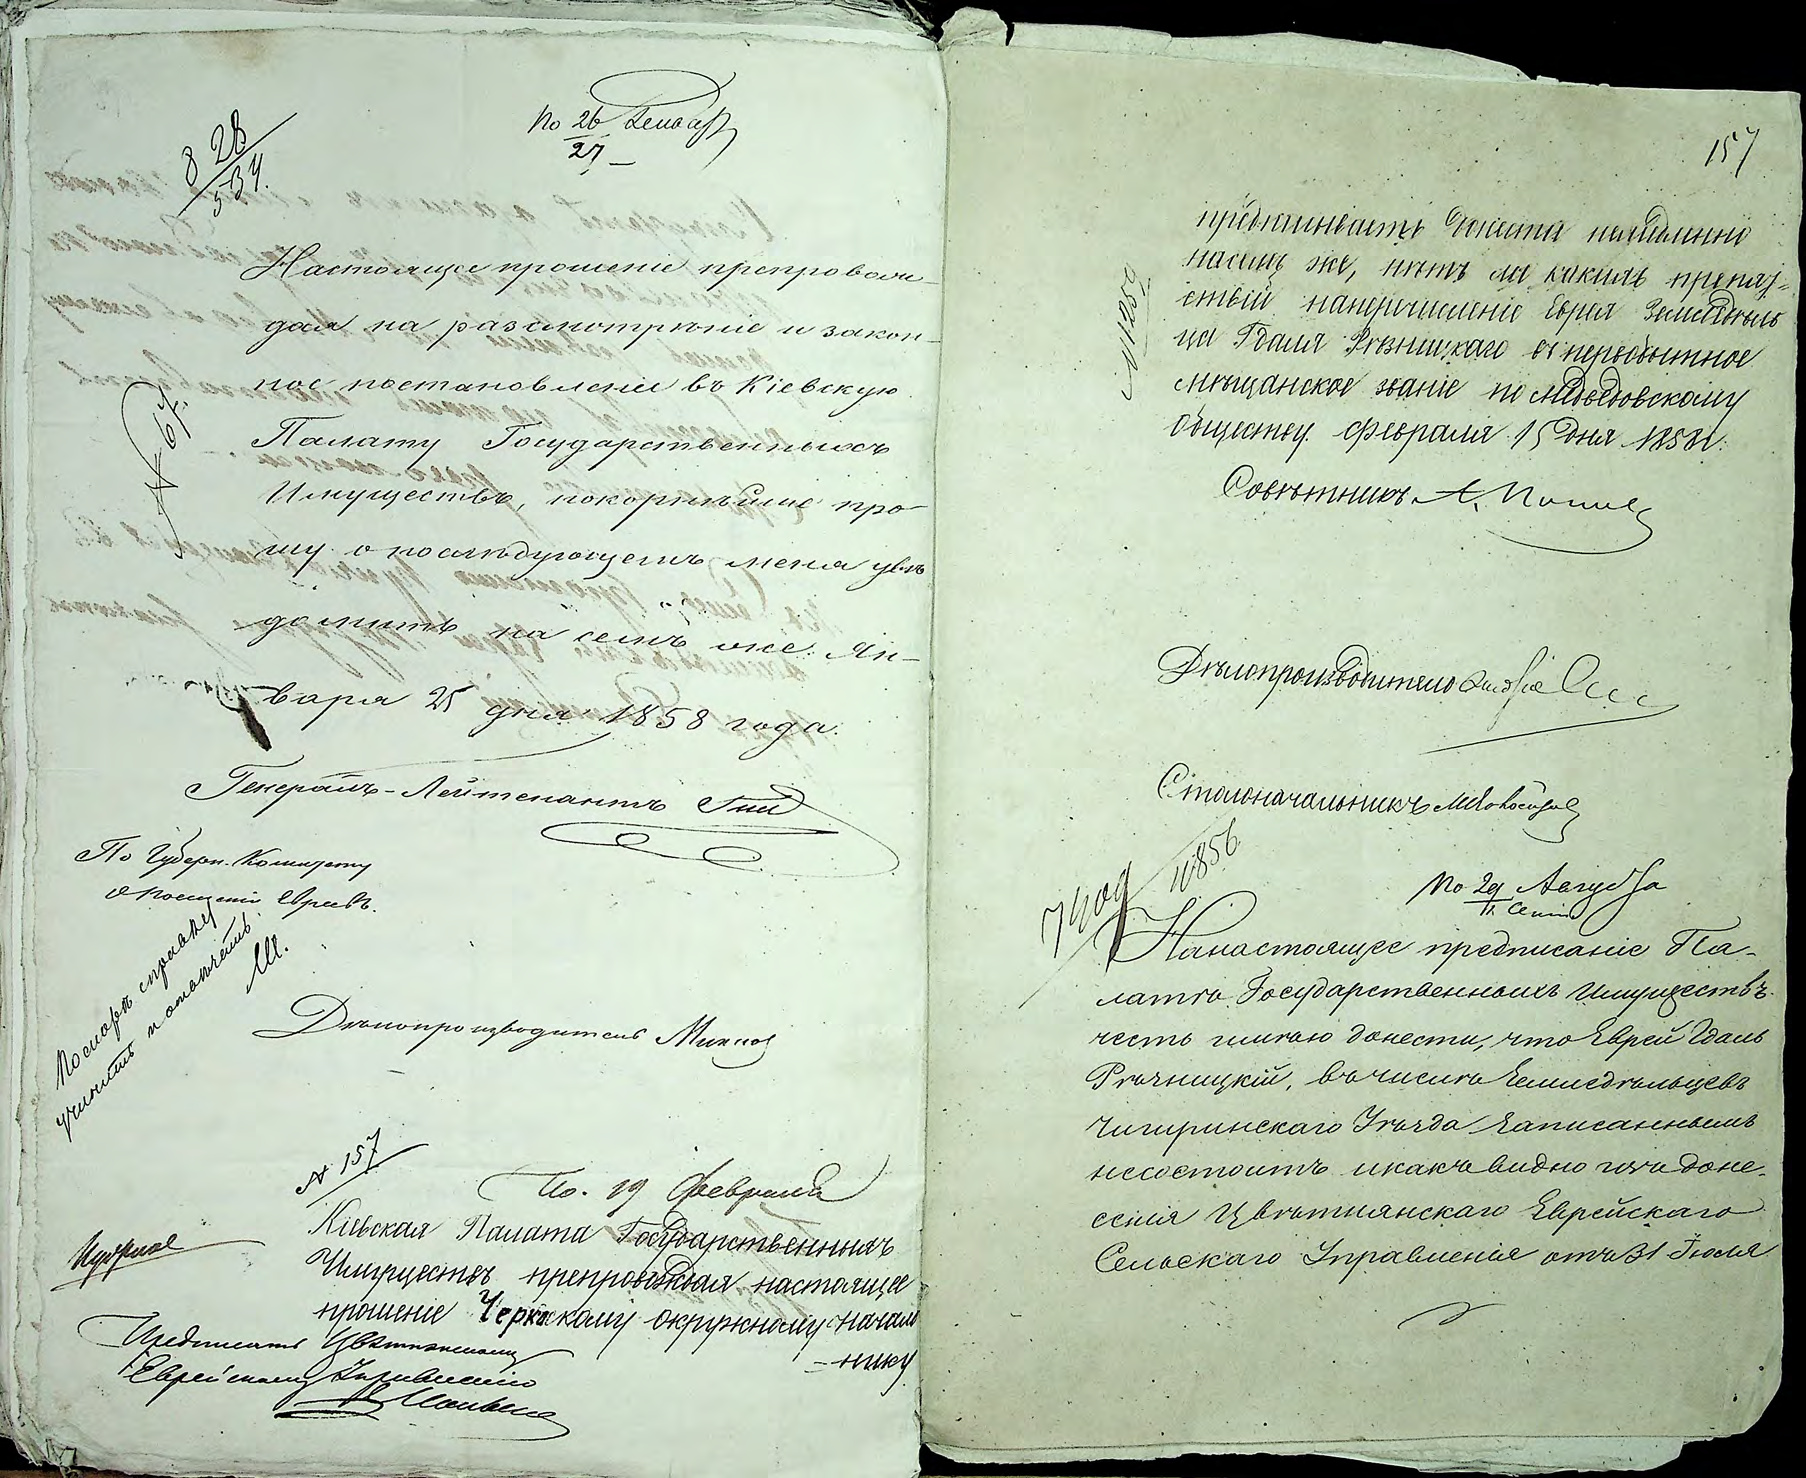 По 26 Генваря
27
8 28/534.
Настоящее прошеніе препровож-
дая на разсмотрѣніе и закон-
ное постановленіе въ Кіевскую
Палату Государственныхъ
Имуществъ, покорнѣйше про-
шу о послѣдующемъ меня увѣ-
домить на семъ же. Ян-
варя 25 дня 1858 года.
№ 67.
Генералъ-Лейтенантъ
По Губерн. Комитету
о поселеніи Евреевъ.
учинить и отвѣчать.
Дѣлопроизводитель
№ 157
По. 19 Февраля
Кіевская Палата Государственныхъ
Имуществъ препровождая настоящее
прошеніе Черкаскому окружному началь
-нику
Предписать Цвѣтнянскому
Еврейскому Управленію
157
предписываетъ донести немедленно
насемъ же, нѣтъ ли какихъ препят-
ствій наперечисленіе Еврея Земледѣль
ца Гдаля Рѣзницкаго въ первобытное
мѣщанское званіе по Медвѣдовскому
обществу. Февраля 15 дня 1858 г.
№ 1259
Совѣтникъ А.
Дѣлопроизводитель
Столоначальникъ
По 29 Августа
11 Сент
Нанастоящее предписаніе Па-
латы Государственныхъ Имуществъ
честь имѣю донести, что Еврей Гдаль
Рѣзницкій, въ числѣ Земледѣльцевъ
Чигиринскаго Уѣзда Записаннымъ
несостоитъ икакъ видно изъ доне-
сенія Цвѣтнянскаго Еврейскаго
Сельскаго Управленія отъ 31 Іюля